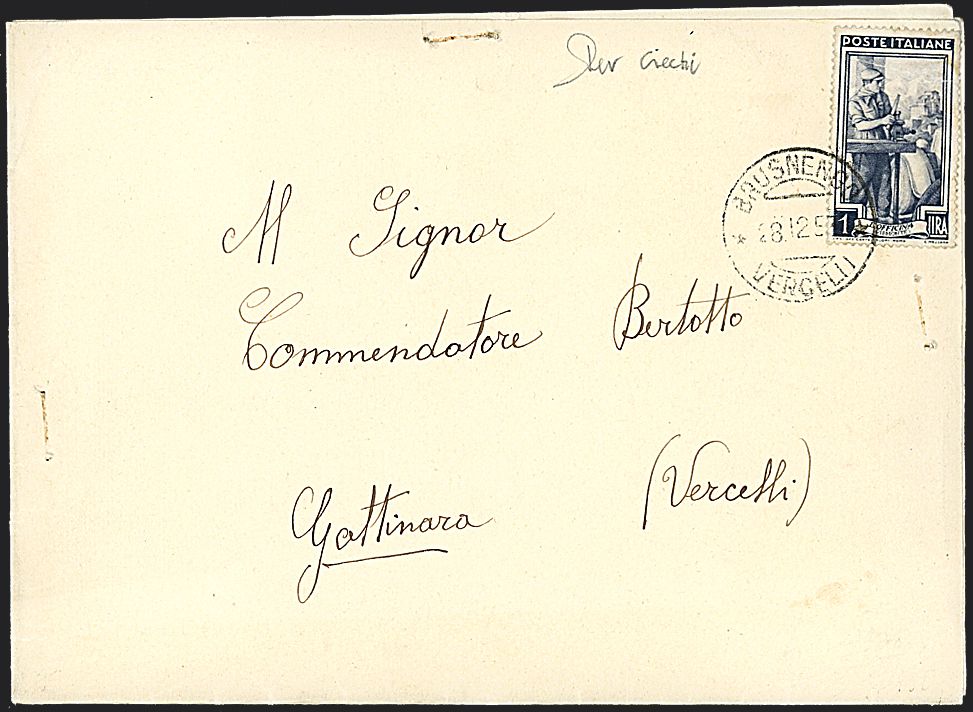 Per ciechi
POSTE ITALIANE
1 LIRA
L'OFFICINA
BRUSNENGO
28.12.5
VERCELLI
Al Signor
Commendatore Bertotto
Gattinara (Vercelli)